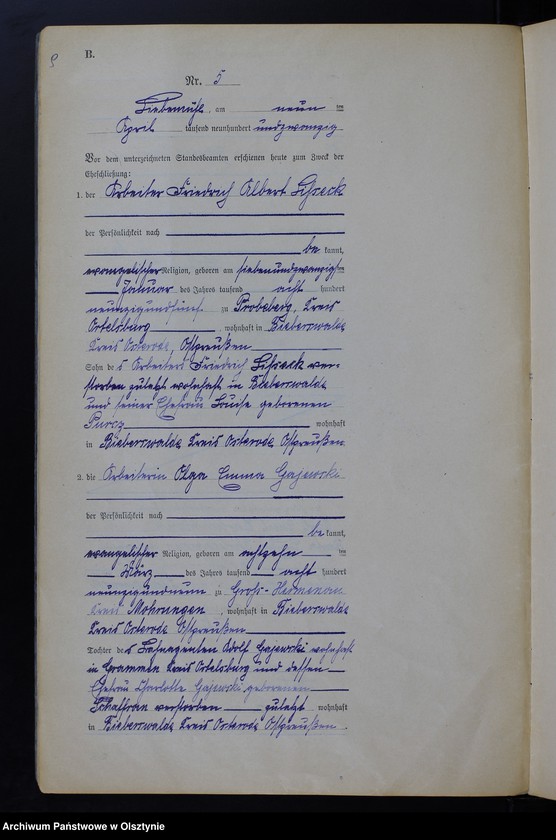 B.
Nr. 5
Liebemühl, am neun ten
April tausend neunhundert undzwanzig
Vor dem unterzeichneten Standesbeamten erschienen heute zum Zweck der
Eheschließung:
1. der Arbeiter Friedrich Albert
der Persönlichkeit nach
be kannt,
evangelischer Religion, geboren am siebenundzwanzigsten
Januar des Jahres tausend acht hundert
neunzigundfünf zu Probeberg, Kreis
Ortelsburg, wohnhaft in Bieberswalde
Kreis Osterode, Ostpreußen
Sohn des Arbeiters Friedrich ver-
storben zuletzt wohnhaft in Bieberswalde
und seiner Ehefrau Louise geborenen
wohnhaft
in Bieberswalde Kreis Osterode Ostpreußen
2. die Arbeiterin Olga Emma Gajewski
der Persönlichkeit nach
be kannt,
evangelischer Religion, geboren am achtzehn ten
März des Jahres tausend acht hundert
neunzigundneun zu Groß-Hermenau
Kreis Mohrungen, wohnhaft in Bieberswalde
Kreis Osterode Ostpreußen
Tochter des Adolf Gajewski wohnhaft
in Grammen Kreis Ortelsburg und dessen
Ehefrau Charlotte Gajewski geborenen
Schaffran verstorben zuletzt wohnhaft
in Bieberswalde Kreis Osterode Ostpreußen.
Archiwum Państwowe w Olsztynie